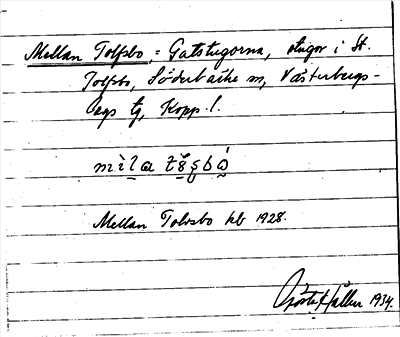 Mellan Tolfsbo, = Gatstugorna, stugor i St.
Tolfsbo, Söderbärke sn, Västerbergs-
lags tg, Kopp. l.
Mellan Tolvsbo kb 1928.
Gösta Hållen 1934.